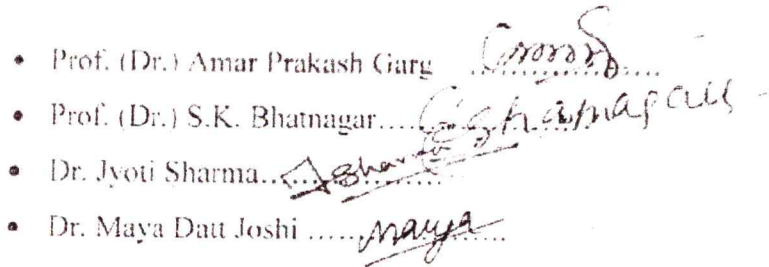 • Prof. (Dr.) Amar Prakash Garg ....................
• Prof. (Dr.) S.K. Bhatnagar.... Bhatnagar
• Dr. Jyoti Sharma.. JSharma
• Dr. Maya Datt Joshi ..... Maya